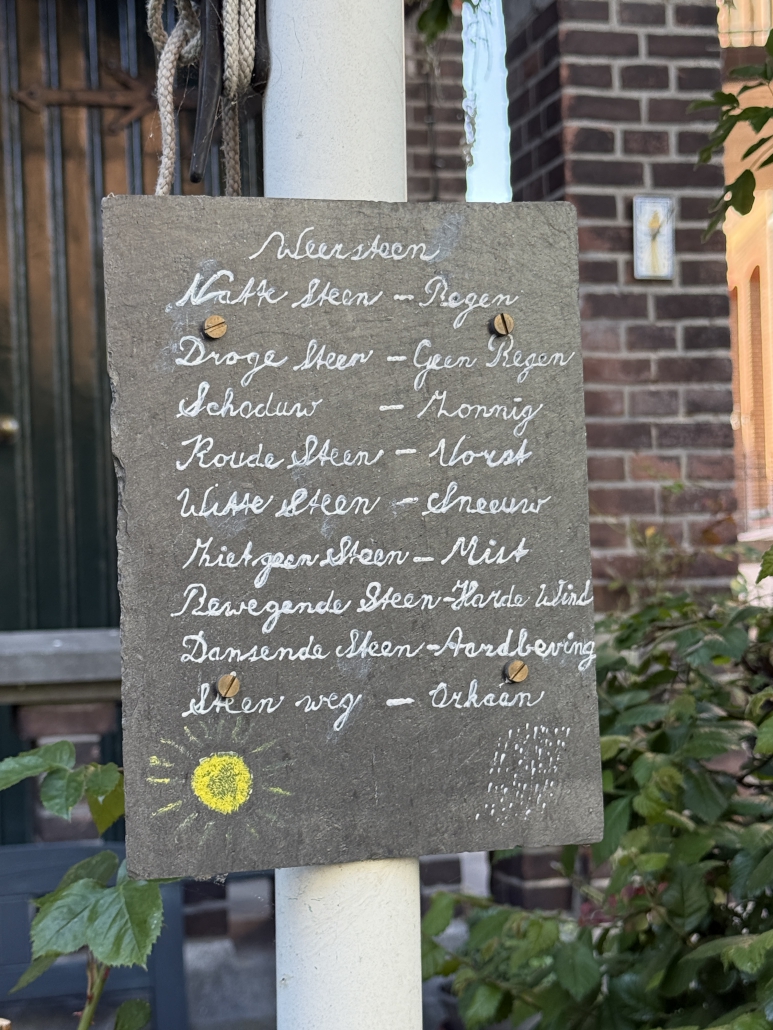 Weersteen
Natte Steen – Regen
Droge Steen – Geen Regen
Schaduw – Zonnig
Koude Steen – Vorst
Witte Steen – Sneeuw
Ziet geen Steen – Mist
Bewegende Steen – Harde Wind
Dansende Steen – Aardbeving
Steen weg – Orkaan